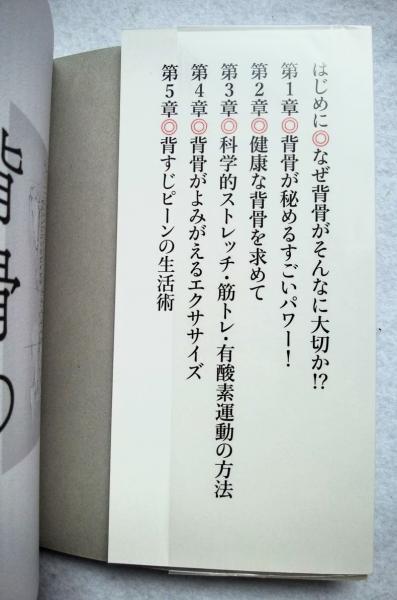 はじめに◎なぜ背骨がそんなに大切か!?
第1章◎背骨が秘めるすごいパワー!
第2章◎健康な背骨を求めて
第3章◎科学的ストレッチ・筋トレ・有酸素運動の方法
第4章◎背骨がよみがえるエクササイズ
第5章◎背すじピーンの生活術
背骨の